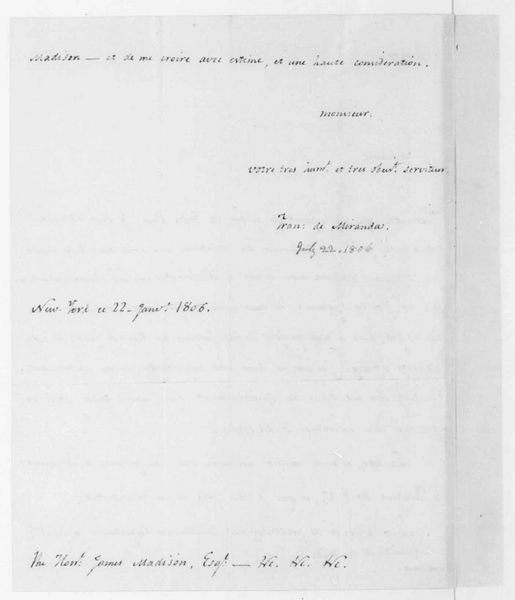 Madison — et de me croire avec estime, et une haute consideration.
monsieur.
votre tres humt. et tres obeit. serviteur
Fran: de Miranda.
July 22. 1806
New-York ce 22 - Janvr. 1806.
The Honl. James Madison, Esqr. — &c. &c. &c.